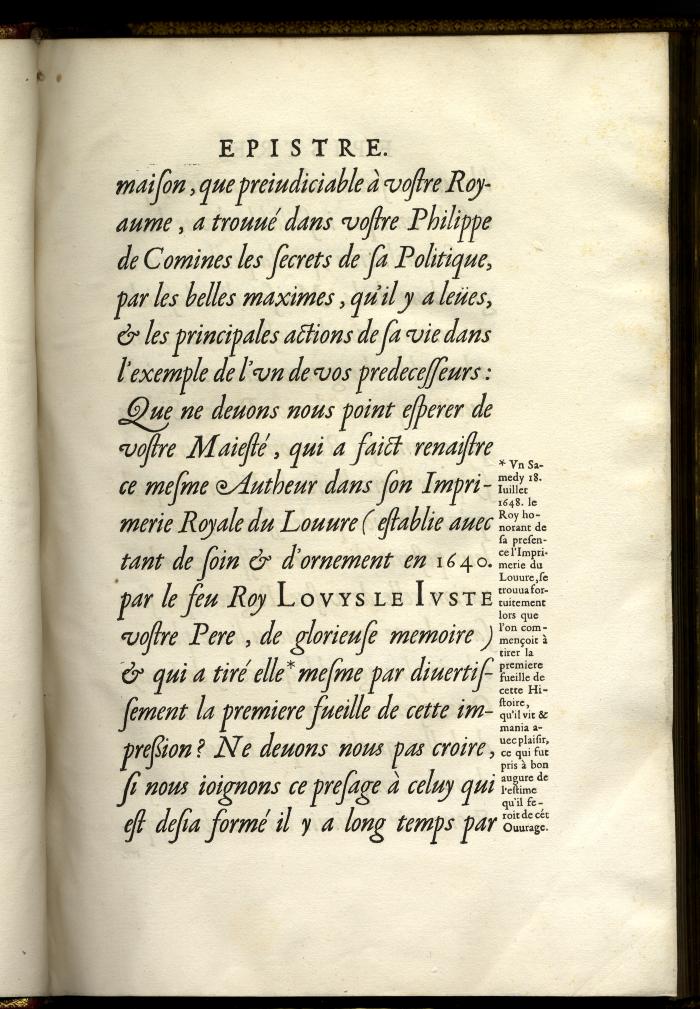 EPISTRE.
maiſon, que preiudiciable à voſtre Roy-
aume, a trouué dans voſtre Philippe
de Comines les ſecrets de ſa Politique,
par les belles maximes, qu'il y a leües,
& les principales actions de ſa vie dans
l'exemple de l'vn de vos predeceſſeurs:
Que ne deuons nous point eſperer de
voſtre Maieſté, qui a faict renaiſtre
ce meſme Autheur dans ſon Impri-
merie Royale du Louure (eſtablie auec
tant de ſoin & d'ornement en 1640.
par le feu Roy LOVYS LE IVSTE
voſtre Pere, de glorieuſe memoire)
& qui a tiré elle*meſme par diuertiſ-
ſement la premiere fueille de cette im-
preßion? Ne deuons nous pas croire,
ſi nous ioignons ce preſage à celuy qui
eſt deſia formé il y a long temps par
* Vn Sa-
medy 18.
Iuillet
1648. le
Roy ho-
norant de
ſa preſen-
ce l'Impri-
merie du
Louure, ſe
trouua for-
tuitement
lors que
l'on com-
mençoit à
tirer la
premiere
fueille de
cette Hi-
ſtoire,
qu'il vit &
mania a-
uec plaiſir,
ce qui fut
pris à bon
augure de
l'eſtime
qu'il fe-
roit de cét
Ouurage.